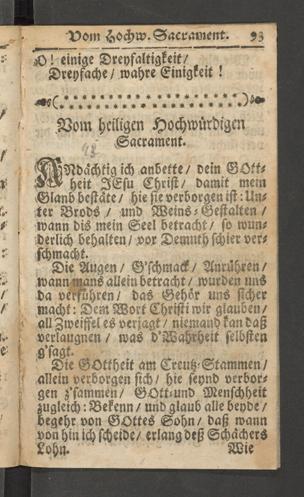 Vom Hochw. Sacrament. 93
O! einige Dreyfaltigkeit/
Dreyfache/ wahre Einigkeit!
Vom heiligen Hochwürdigen
Sacrament.
48
ANdächtig ich anbette/ dein GOtt-
heit JEsu Christ/ damit mein
Glaub bestäte/ hie sie verborgen ist: Un-
ter Brods/ und Weins-Gestalten/
wann dis mein Seel betracht/ so wun-
derlich behalten/ vor Demuth schier ver-
schmacht.
Die Augen/ G'schmack/ Anrühren/
wann mans allein betracht/ wurden uns
da verführen/ das Gehör uns sicher
macht: Dem Wort Christi wir glauben/
all Zweiffel es verjagt/ niemand kan daß
verlaugnen/ was d'Wahrheit selbsten
g'sagt.
Die GOttheit am Creutz-Stammen/
allein verborgen sich/ hie seynd verbor-
gen z'sammen/ GOtt-und Menschheit
zugleich: Bekenn/ und glaub alle beyde/
begehr von GOttes Sohn/ daß wann
von hin ich scheide/ erlang deß Schächers
Lohn.
Wie